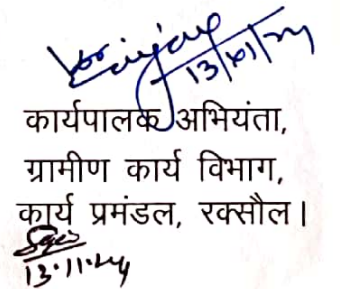 13/11/24
कार्यपालक अभियंता,
ग्रामीण कार्य विभाग,
कार्य प्रमंडल, रक्सौल।
13.11.24